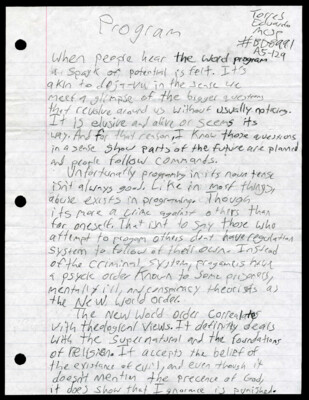 Program
Torres
Eduardo
MCSP
A5-129
When people hear the word program
a spark of potential is felt. It's
akin to deja-vu in the sense we
meet a glimpse of the bigger questions
that revolve around us without usually noticing.
It is elusive and alive or seems its
way. And for that reason I know those questions
in a sense show parts of the future are planned
and people follow commands.
Unfortunally programing in its naiva tense
isn't always good. Like in most things,
abuse exists in programing. Though
its more a crime against others than
for oneself. That isn't to say those who
attempt to program others dont have regulation
system to follow of their own. Instead
of the criminal system, programers have
a psycic order known to some prisoners,
mentally ill, and conspiracy theorists as
the New World Order.
The New World Order correlates
with theological views. It definitly deals
with the supernatural and the foundations
of religion. It accepts the belief of
the existance of evil, and even though it
doesn't mention the precence of God,
it does show that ignorance is punished.